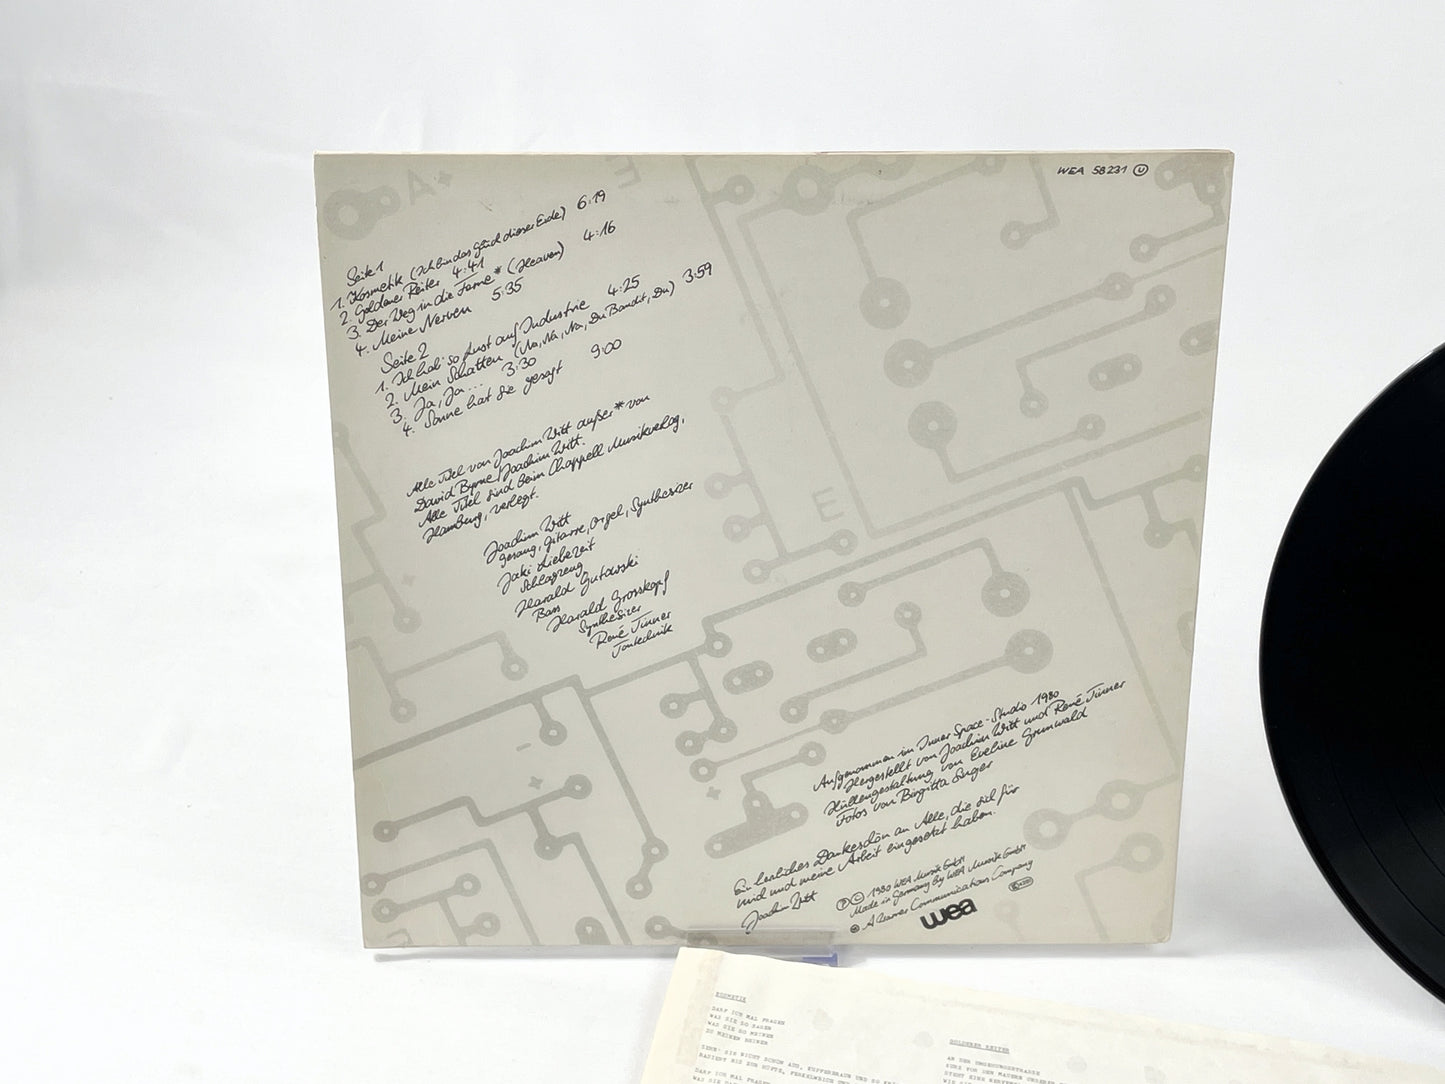 WEA 58231 Ⓤ
Seite 1
1. Kosmetik (Ich bin das Glück dieser Erde) 6:19
2. Goldener Reiter 4:41
3. Der Weg in die Ferne* (Heaven) 4:16
4. Meine Nerven 5:35
Seite 2
1. Ich hab' so Lust auf Industrie 4:25
2. Mein Schatten (Na, Na, Na, Du Bandit, Du) 3:59
3. Ja, Ja ... 3:30
4. Sonne hat sie gesagt 9:00
Alle Titel von Joachim Witt außer * von
David Byrne/Joachim Witt.
Alle Titel sind beim Chappell Musikverlag,
Hamburg, verlegt.
Joachim Witt
Gesang, Gitarre, Orgel, Synthesizer
Jaki Liebezeit
Schlagzeug
Harald Gutowski
Bass
Harald Grosskopf
Synthesizer
René Tinner
Tontechnik
Aufgenommen im Inner Space-Studio 1980
Hergestellt von Joachim Witt und René Tinner
Hüllengestaltung von Eveline Grunwald
Fotos von Birgitta Singer
Ein herzliches Dankeschön an Alle, die sich für
mich und meine Arbeit eingesetzt haben.
Joachim Witt
Ⓟ © 1980 WEA Musik GmbH
Made in Germany by WEA Musik GmbH
A Warner Communications Company
wea
KOSMETIK
DARF ICH MAL FRAGEN
WAS SIE SO SAGEN
WAS SIE SO MEINEN
ZU MEINEN BEINEN
SEHR SIE NICHT SCHÖN AUS, KUPFERBRAUN UND SO
RASIERT BIS ZUR HÜFTE,
DARF ICH MAL FRAGEN
WAS SIE
GOLDENER REITER
AN DER UMGEHUNGSSTRASSE
KURZ VOR DEN MAUERN UNSERER
STEHT EINE